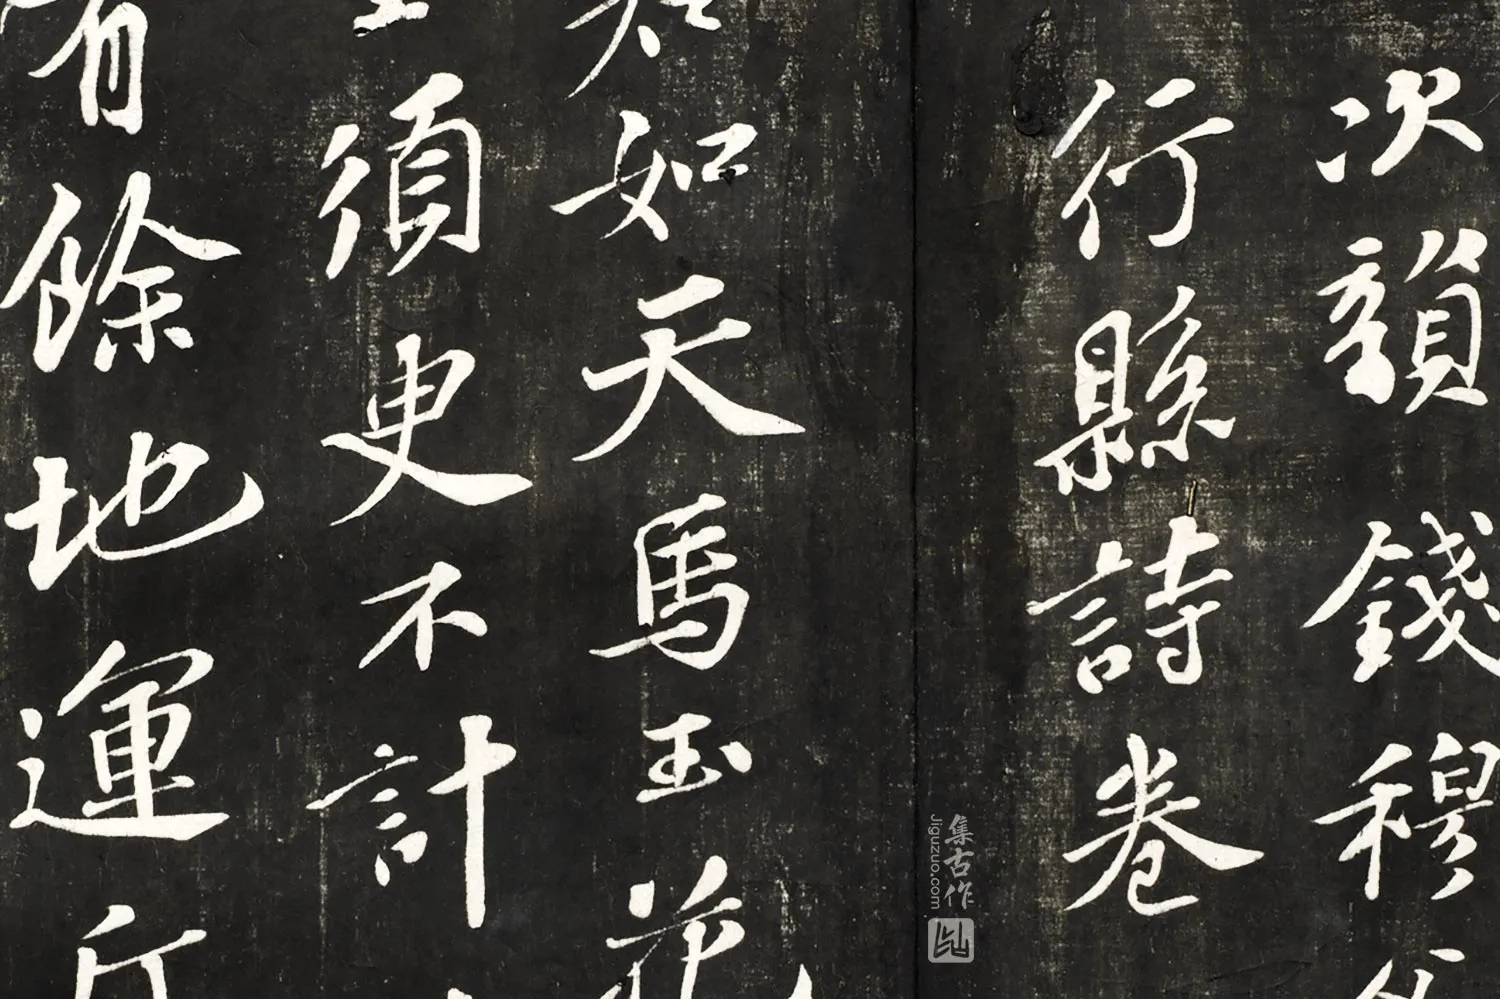 次韻錢穆父
行縣詩卷
如天馬玉花
須更不計
有餘地運斤
集古作
Jiguzuo.com